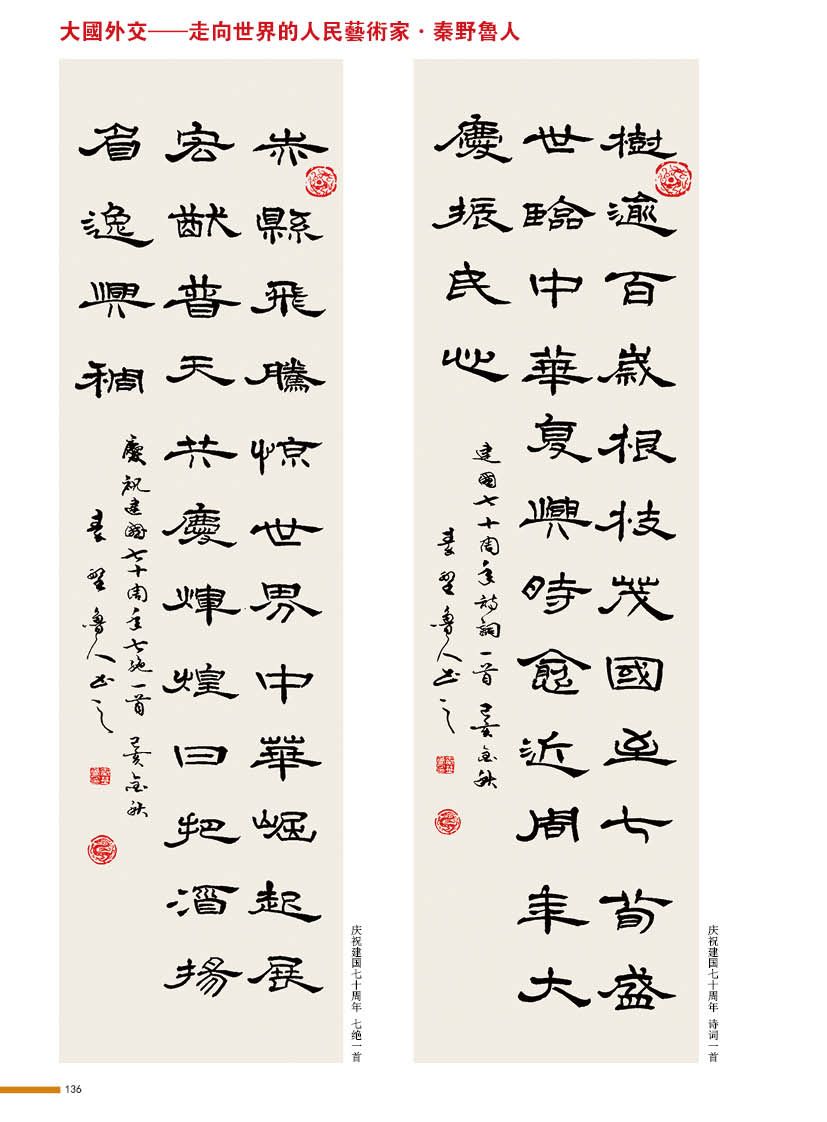 大國外交——走向世界的人民藝術家·秦野魯人
樹逾百歲根枝茂國至七旬盛
世臨中華复興時愈近周年大
慶振民心
建國七十周年詩詞一首 己亥金秋
秦野魯人书之
庆祝建国七十周年 诗词一首
赤縣飛騰惊世界中華崛起展
宏猷普天共慶煇煌日把酒揚
眉逸興稠
慶祝建國七十周年七绝一首 己亥金秋
秦野魯人书之
庆祝建国七十周年 七绝一首
136